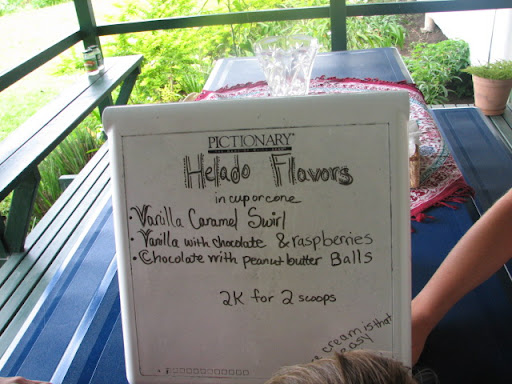 PICTIONARY
Helado Flavors
in cup or cone
• Vanilla Caramel Swirl
• Vanilla with chocolate & raspberries
• Chocolate with peanut butter Balls
2K for 2 scoops
cream is that
easy